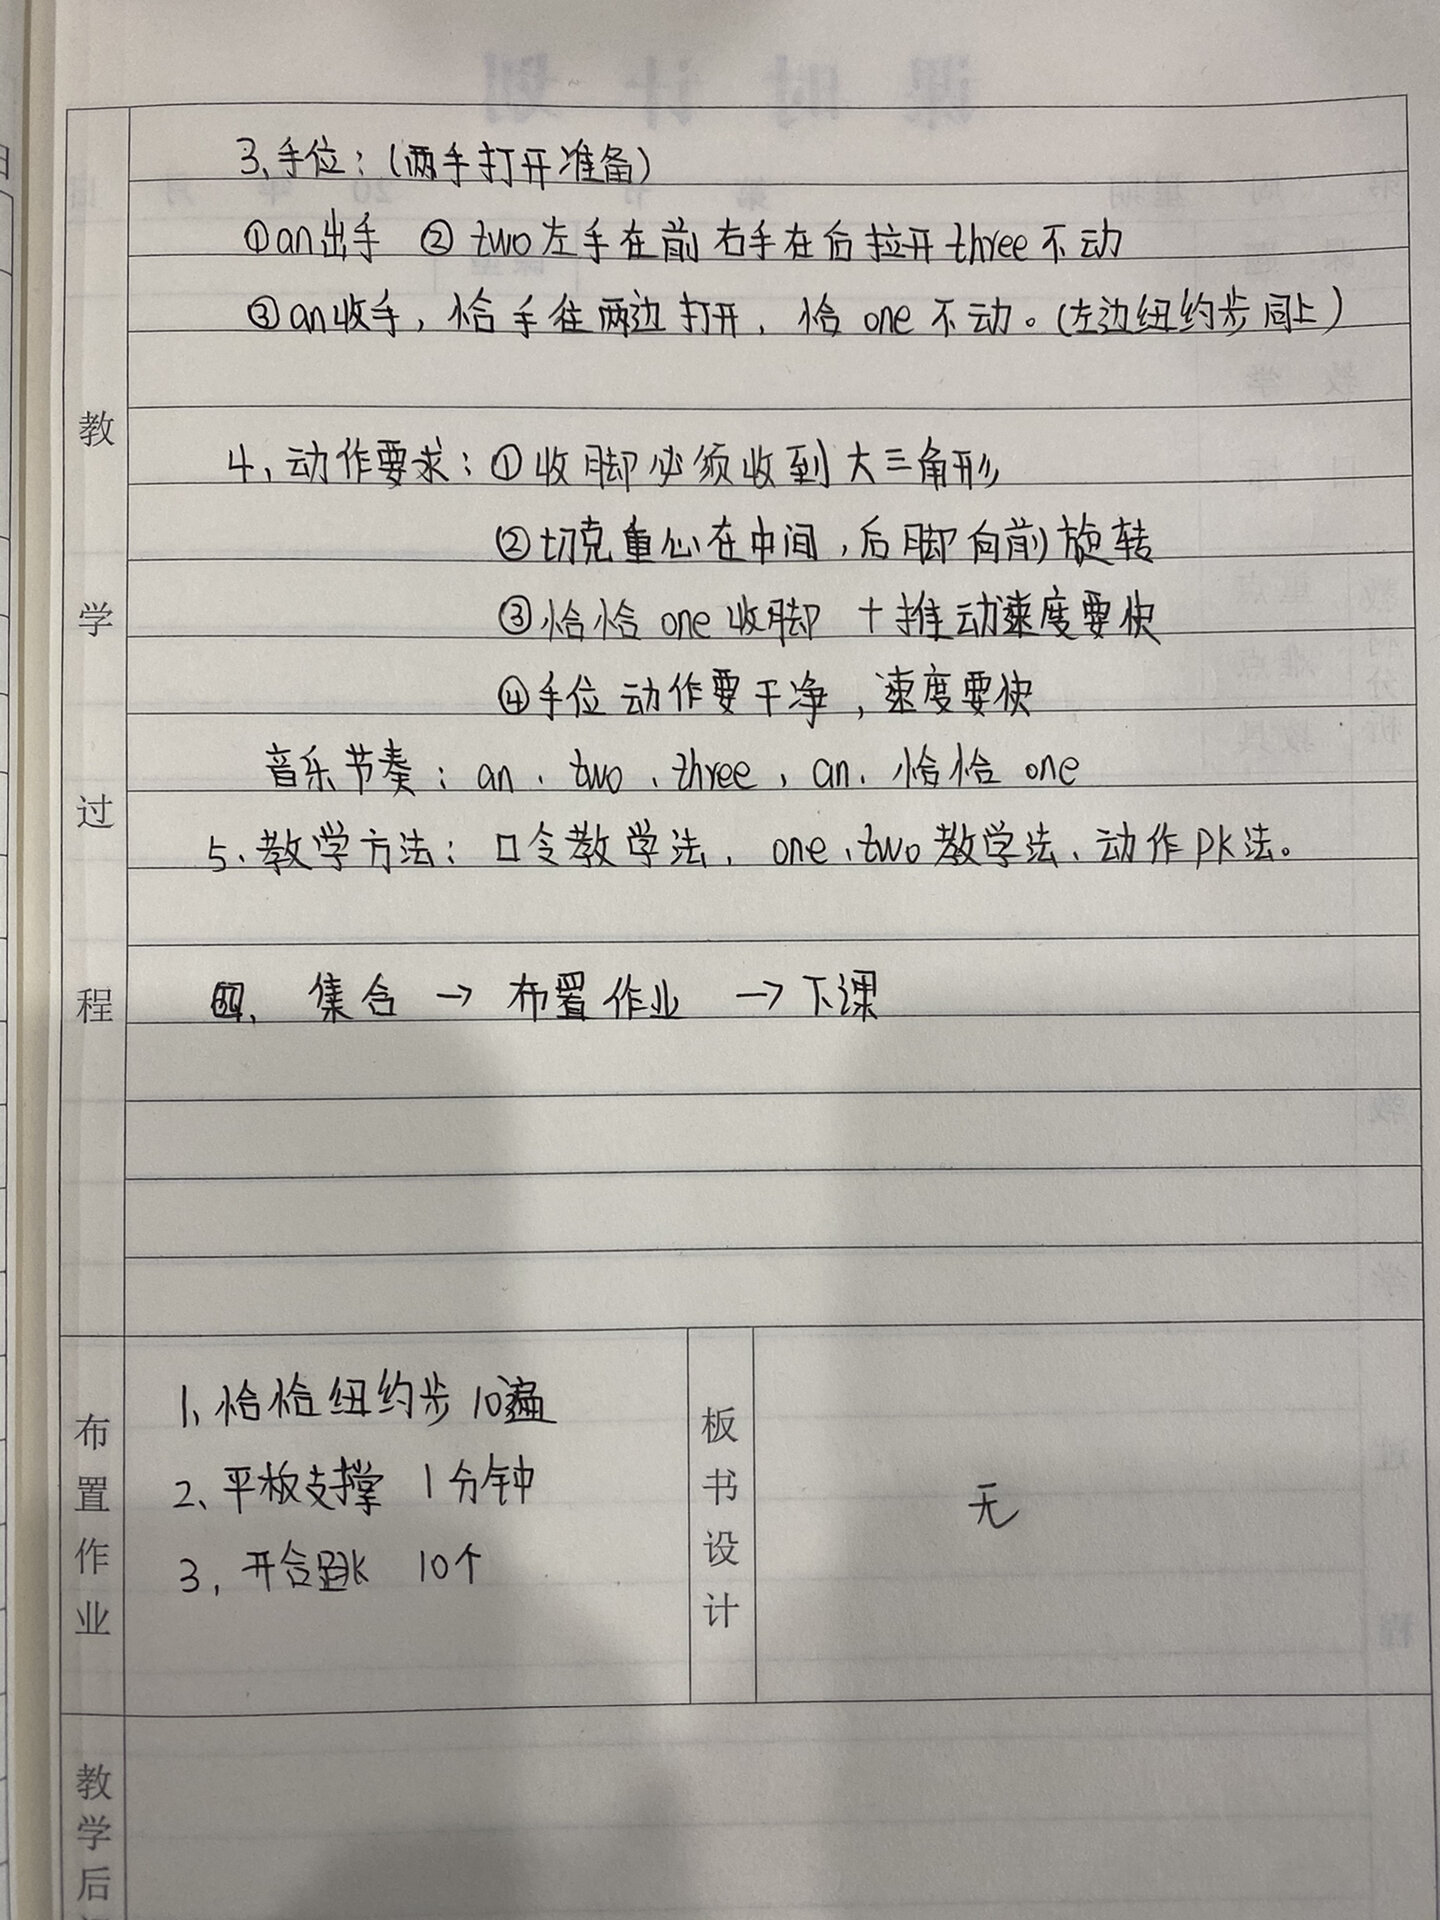 3、手位：（两手打开准备）
①an出手 ② two左手在前右手在后拉开three不动
③an收手，恰手往两边打开，恰one不动。（左边纽约步同上）
4、动作要求：①收脚必须收到大三角形
②切克重心在中间，后脚向前旋转
③恰恰one收脚 十推动速度要快
④手位动作要干净，速度要快
音乐节奏：an、two、three，an、恰恰one
5、教学方法：口令教学法，one、two教学法、动作PK法。
四、集合→布置作业→下课
教学过程
布置作业
1、恰恰纽约步10遍
2、平板支撑 1分钟
3、开合跳 10个
板书设计
无
教学后